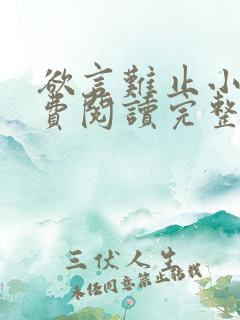 欲言難止小
費閱讀完整
三伏人生
未经同意禁止转载